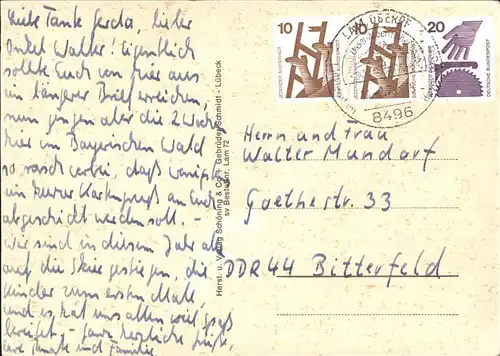 Liebe Tante Gerda, lieber
Onkel Walter! Eigentlich
sollte Euch von hier aus
ein längerer Brief erreichen,
nun gingen aber die 2 Wochen
hier im Bayerischen Wald
so rasch vorbei, daß wenigst.
ein kurzer Kartengruß an Euch
abgeschickt werden soll. -
Wir sind in diesem Jahr alle
auf die Skier gestiegen, die
Kinder zum ersten Male,
und es hat uns allen viel Spaß
bereitet - ganz herzliche Grüße,
Eure und Familie.
Herst. u. Verlag Schöning & Co + Gebrüder Schmidt - Lübeck
sv Bestellnr. Lam 72
10
10
20
DEUTSCHE BUNDESPOST
LAM, OBERPF
8496
Herrn und Frau
Walter Mundorf
Goethestr. 33
DDR 44 Bitterfeld